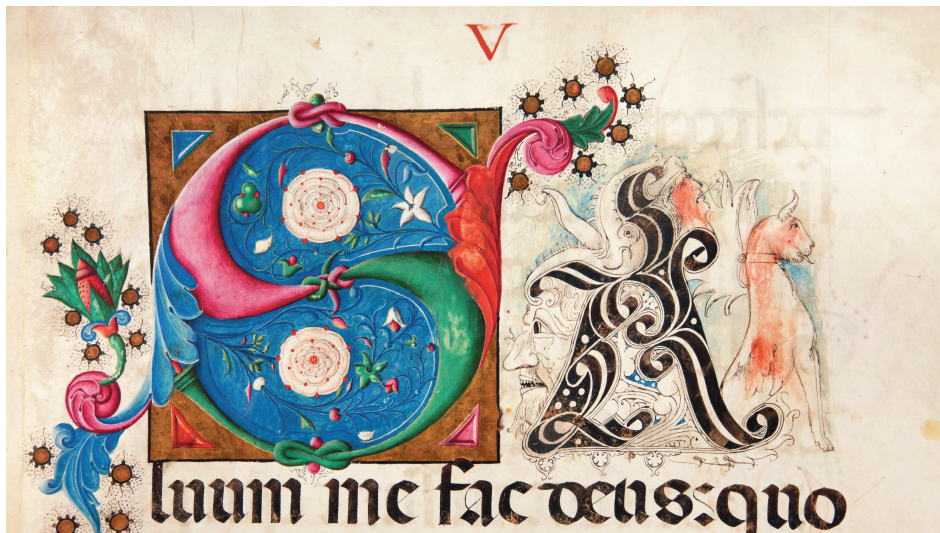 V
SA
luum me fac deus:quo